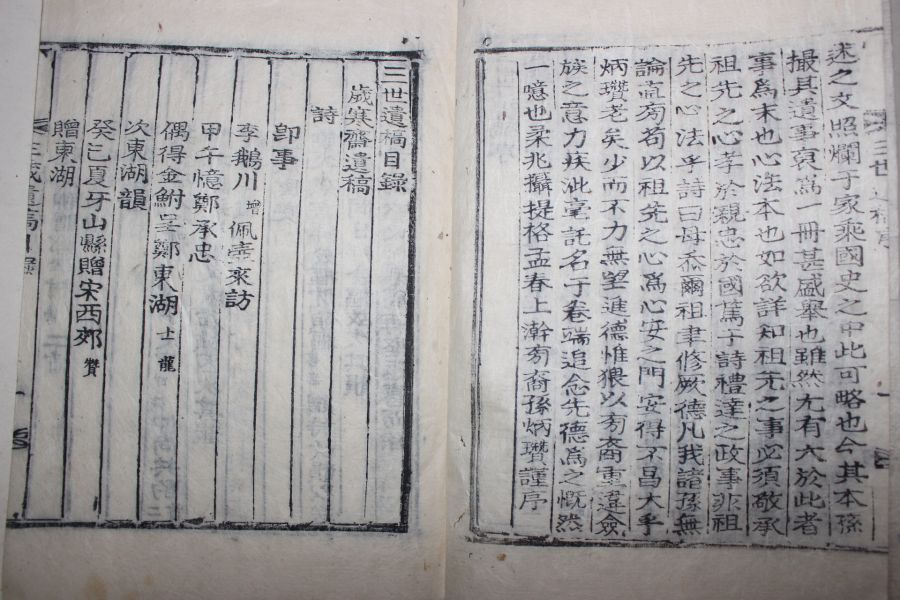 述之文照爛于家乘國史之中此可略也今其本孫
撮其遺事寘爲一冊甚盛擧也雖然尤有大於此者
事爲末也心法本也如欲詳知祖先之事必須敬承
祖先之心孝於親忠於國篤于詩禮達之政事非祖
先之心法乎詩曰毋忝爾祖聿修厥德凡我諸孫無
論直旁苟以祖先之心爲心安之門安得不昌大乎
炳瓚老矣少而不力無望進德惟猥以旁裔重違僉
族之意力疾泚毫託名于卷端追念先德爲之慨然
一噫也柔兆攝提格孟春上澣旁裔孫炳瓚謹序
三世遺稿目錄
歲寒齋遺稿
詩
卽事
李鵝川增佩壺來訪
甲午憶鄭承忠
偶得金鮒呈鄭東湖士龍
次東湖韻
癸巳夏牙山縣贈宋西郊贊
贈東湖